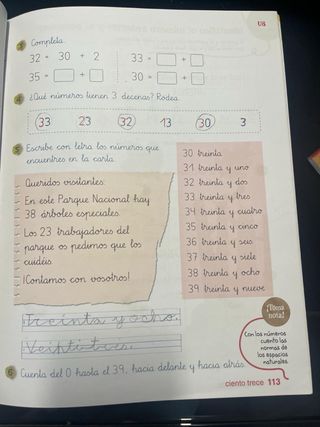 U8
3 Completa.
32 = 30 + 2
33 = +
35 = +
30 = +
4 ¿Qué números tienen 3 decenas? Rodea.
33 23 32 13 30 3
5 Escribe con letra los números que
encuentres en la carta.
Queridos visitantes:
En este Parque Nacional hay
38 árboles especiales.
Los 23 trabajadores del
parque os pedimos que los
cuidéis.
¡Contamos con vosotros!
30 treinta
31 treinta y uno
32 treinta y dos
33 treinta y tres
34 treinta y cuatro
35 treinta y cinco
36 treinta y seis
37 treinta y siete
38 treinta y ocho
39 treinta y nueve
Treinta y ocho.
Veintitres.
¡Toma
nota!
Con los números
cuento las
normas de
los espacios
naturales.
6 Cuenta del 0 hasta el 39, hacia delante y hacia atrás.
ciento trece 113